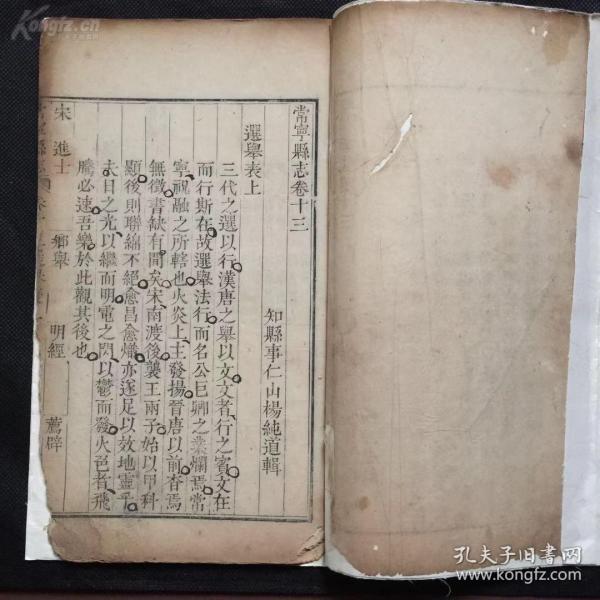 常寧縣志卷十三
知縣事仁山楊純道輯
選舉表上
三代之選以行漢唐之舉以文文者行之賓文在
而行斯在故選舉法行而名公巨卿之業爛焉常
寧視融之所轄也火炎上主發揚晉唐以前杳焉
無徵書缺有間矣宋南渡後襲王兩子始以甲科
顯後則聯綿不絕愈昌愈熾亦遂足以效地靈乎
夫日之光以繼而明電之閃以鬱而發火邑者飛
騰必速吾樂於此觀其後也
宋 進士 鄉舉 明經 薦辟
Kongfz.com
孔夫子旧书网
www.kongfz.com